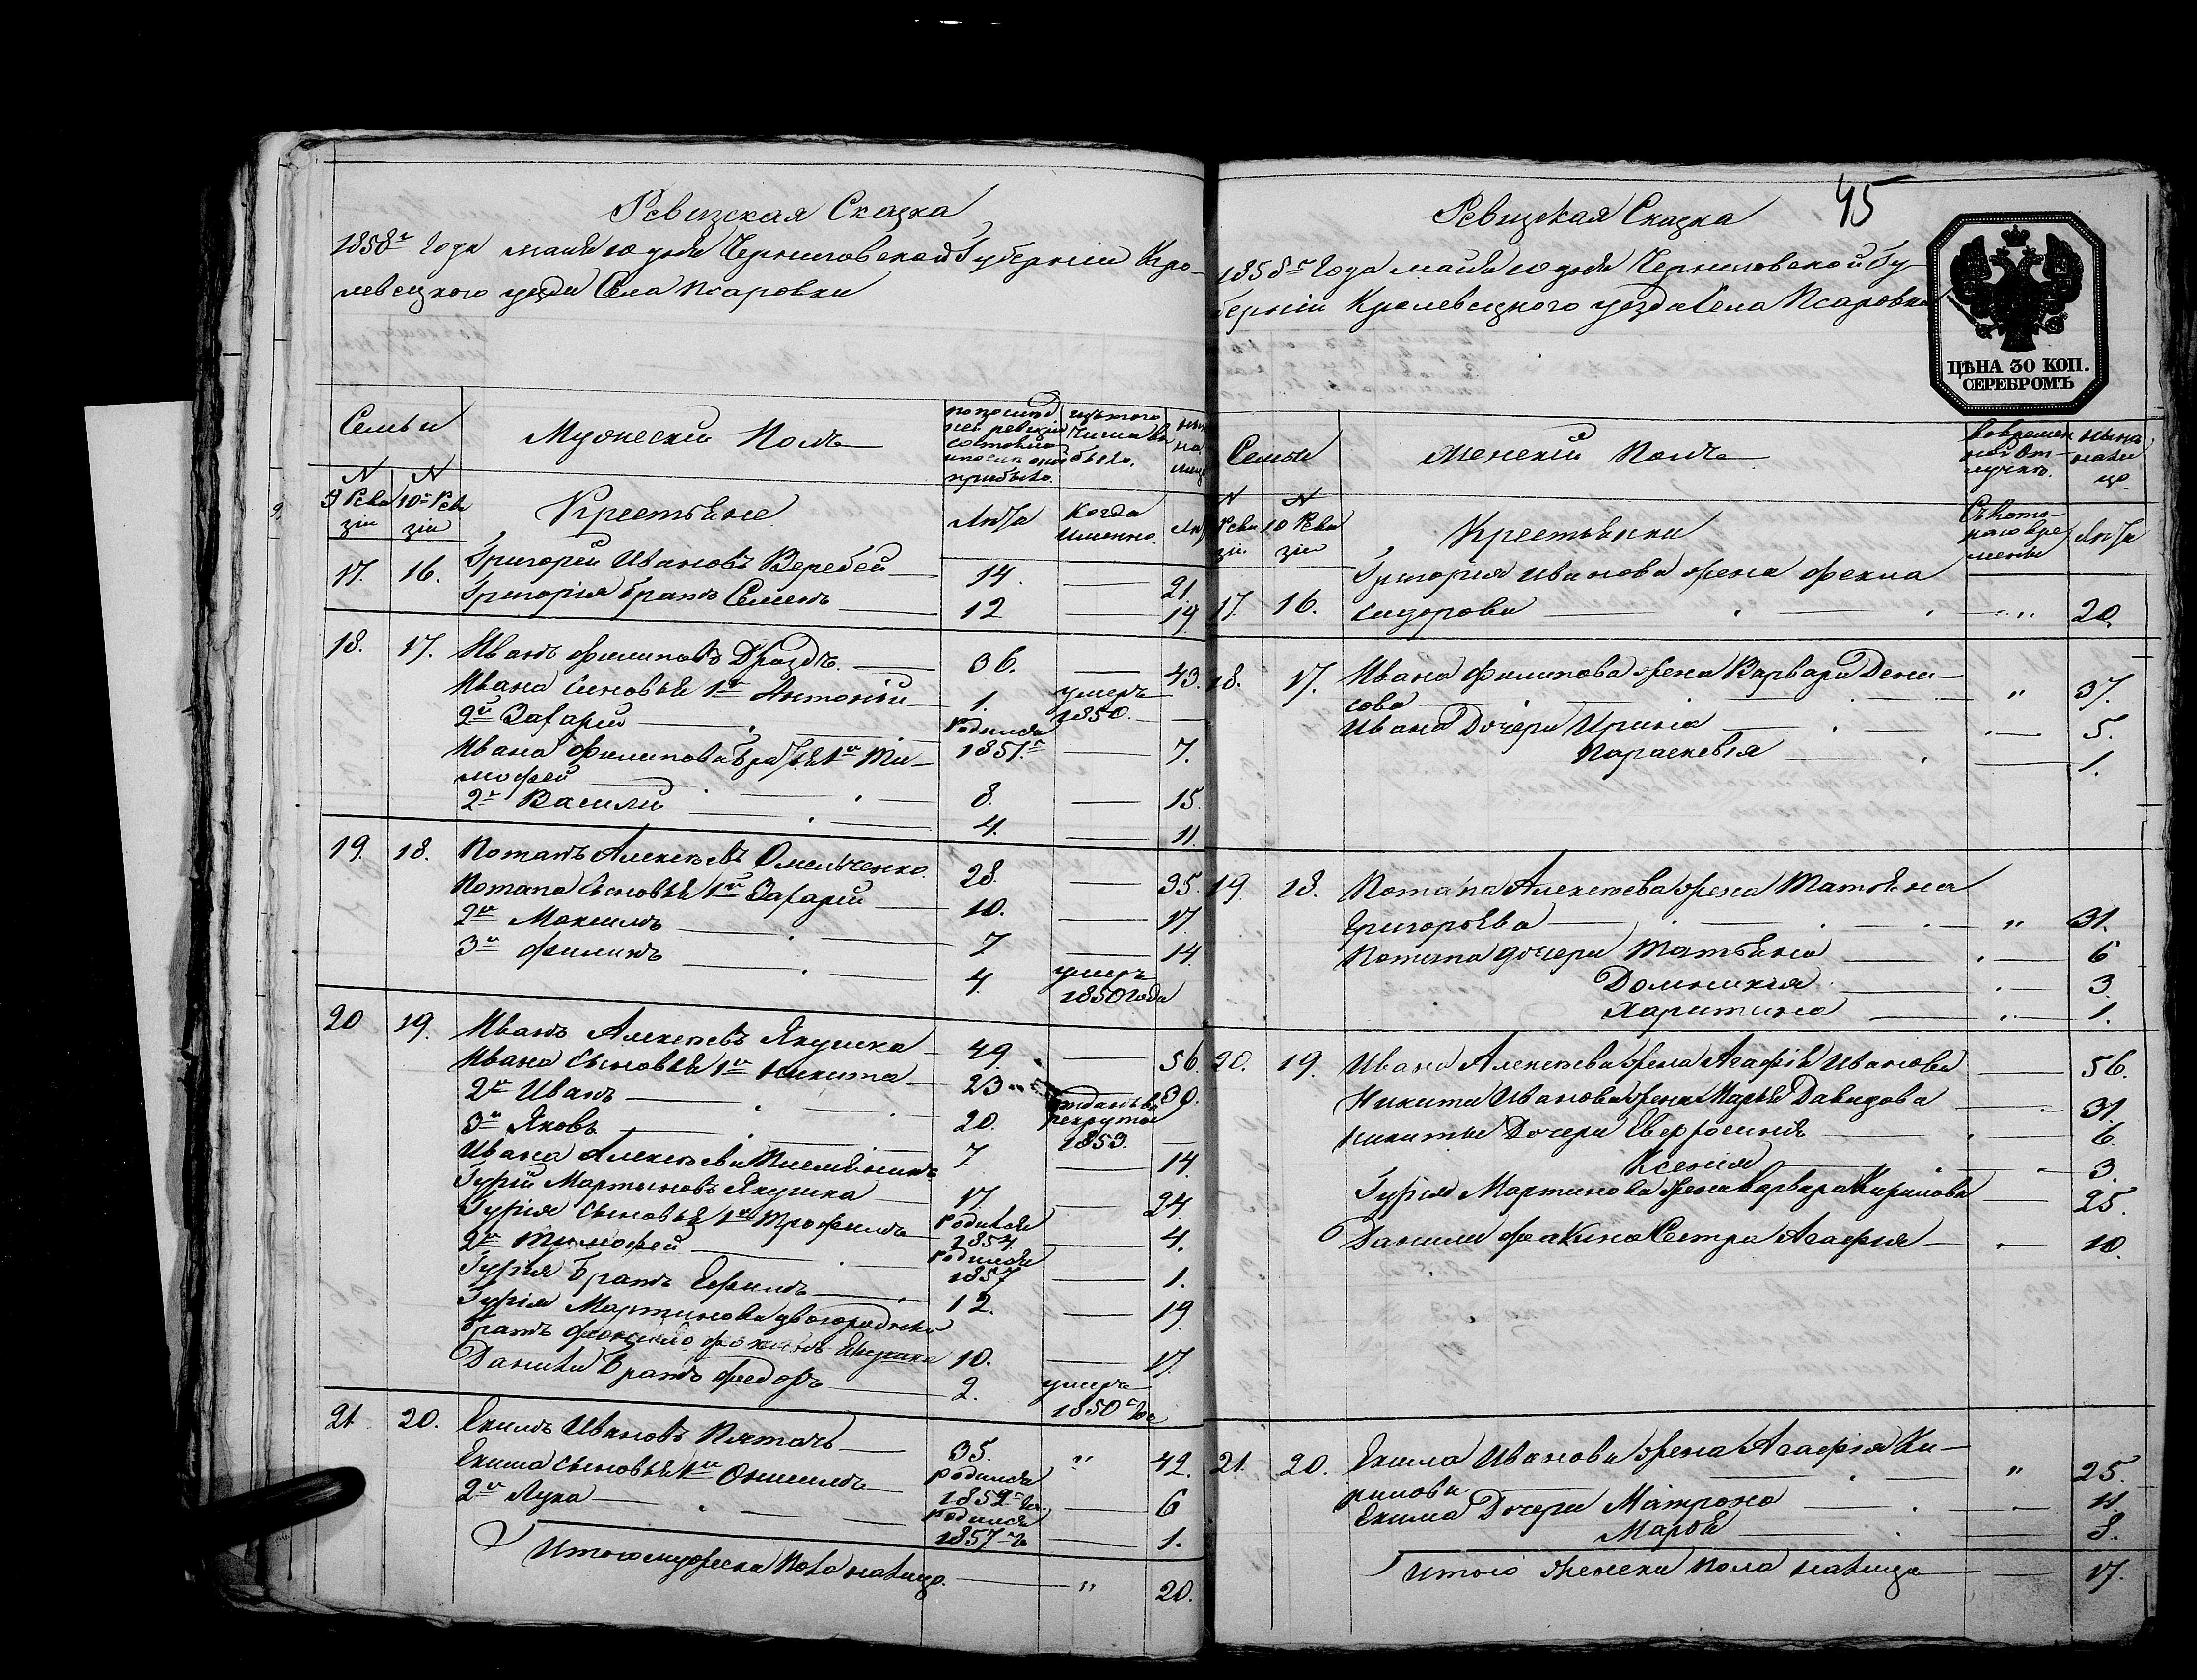 Ревизская Сказка
1858го года майя 10 дня Черниговской Губерніи Кро-
левецкого уезда Села Псаровки
Семьи
Мужеский Полъ
по последней ревизіи состояло и после оной прибыло
изъ того числа выбыло.
ныне на лицо
N 9 Ревизіи
N 10й Ревизіи
Крестьяне
Лѣта
Когда именно.
Лѣ
17. 16. Григорей Ивановъ Веребей 14. 21.
Григорія братъ Семенъ 12 19.
18. 17. Иванъ Филиповъ Дроздъ. 36. 43.
Ивана синовья 1й Антоній 1. умеръ 1850.
2й Захарій родился 1851го 7.
Ивана Филипова братья 1й Ти-
мофей 8. 15.
2й Василий 4. 11.
19. 18. Потапъ Алексѣевъ Омельченко 28. 35.
Потапа Сыновья 1й Захарій 10. 17.
2й Максимъ 7 14.
3й Филипъ 4. умеръ 1850 года
20 19. Иванъ Алексѣевъ Якушка 49. 56.
Ивана Сыновья 1й Никита 23 30.
2й Иванъ 20. отданъ в рекруты 1853.
3й Яковъ 7. 14.
Ивана Алексѣева Племянникъ
Гурій Мартыновъ Якушка 17. 24.
Гурія Сыновья 1й Трофимъ родился 1854 4.
2й Тимофей родился 1857 1.
Гурія Братъ Ефимъ 12. 19
Гурія Мартинова двоюродный
братъ Якушка 10. 17.
Данила Братъ Федоръ 2. умеръ 1850го го
21 20. Екимъ Ивановъ Пятачъ 35. " 42.
Екима Сыновья 1й Онисимъ родился 1852го го 6
2й Лука родился 1857го г 1.
Итого мужеска Пола налицо. " 20.
45
Ревизская Сказка
1858го Года майя 10 дня Черниговской Гу-
берніи Кролевецкого уезда Села Псаровки
ЦѢНА 30 КОП.
СЕРЕБРОМЪ
Семьи
Женский Полъ
Во временной отлучке.
ныне налицо
N Ревизіи
N 10 Ревизіи
Крестьянки
Съ которого времени
Лѣта
17. 16. Григория Иванова жена Фекла
Сидорова " 20.
18. 17. Ивана Филипова жена Варвара Дени-
сова " 37.
Ивана Дочери Ирина 5.
Параскевія 1.
19. 18. Потапа Алексѣева жена Татьяна
Григорьева " 31.
Потапа дочери Татьяна 6
Домникія 3.
Харитина 1.
20. 19. Ивана Алексѣева жена Агафія Иванова 56.
Никиты Иванова жена Марья Давидова 31.
Никиты Дочери Евфросинія 6.
Ксенія 3.
Гурія Мартинова жена Варвара Кирилова 25.
Данилы Фокина Сестра Агафія 10.
21. 20. Екима Иванова жена Агафія Ки-
рилова " 25.
Екима Дочери Матрона 11.
Марья 8.
Итого женска пола налицо 17.